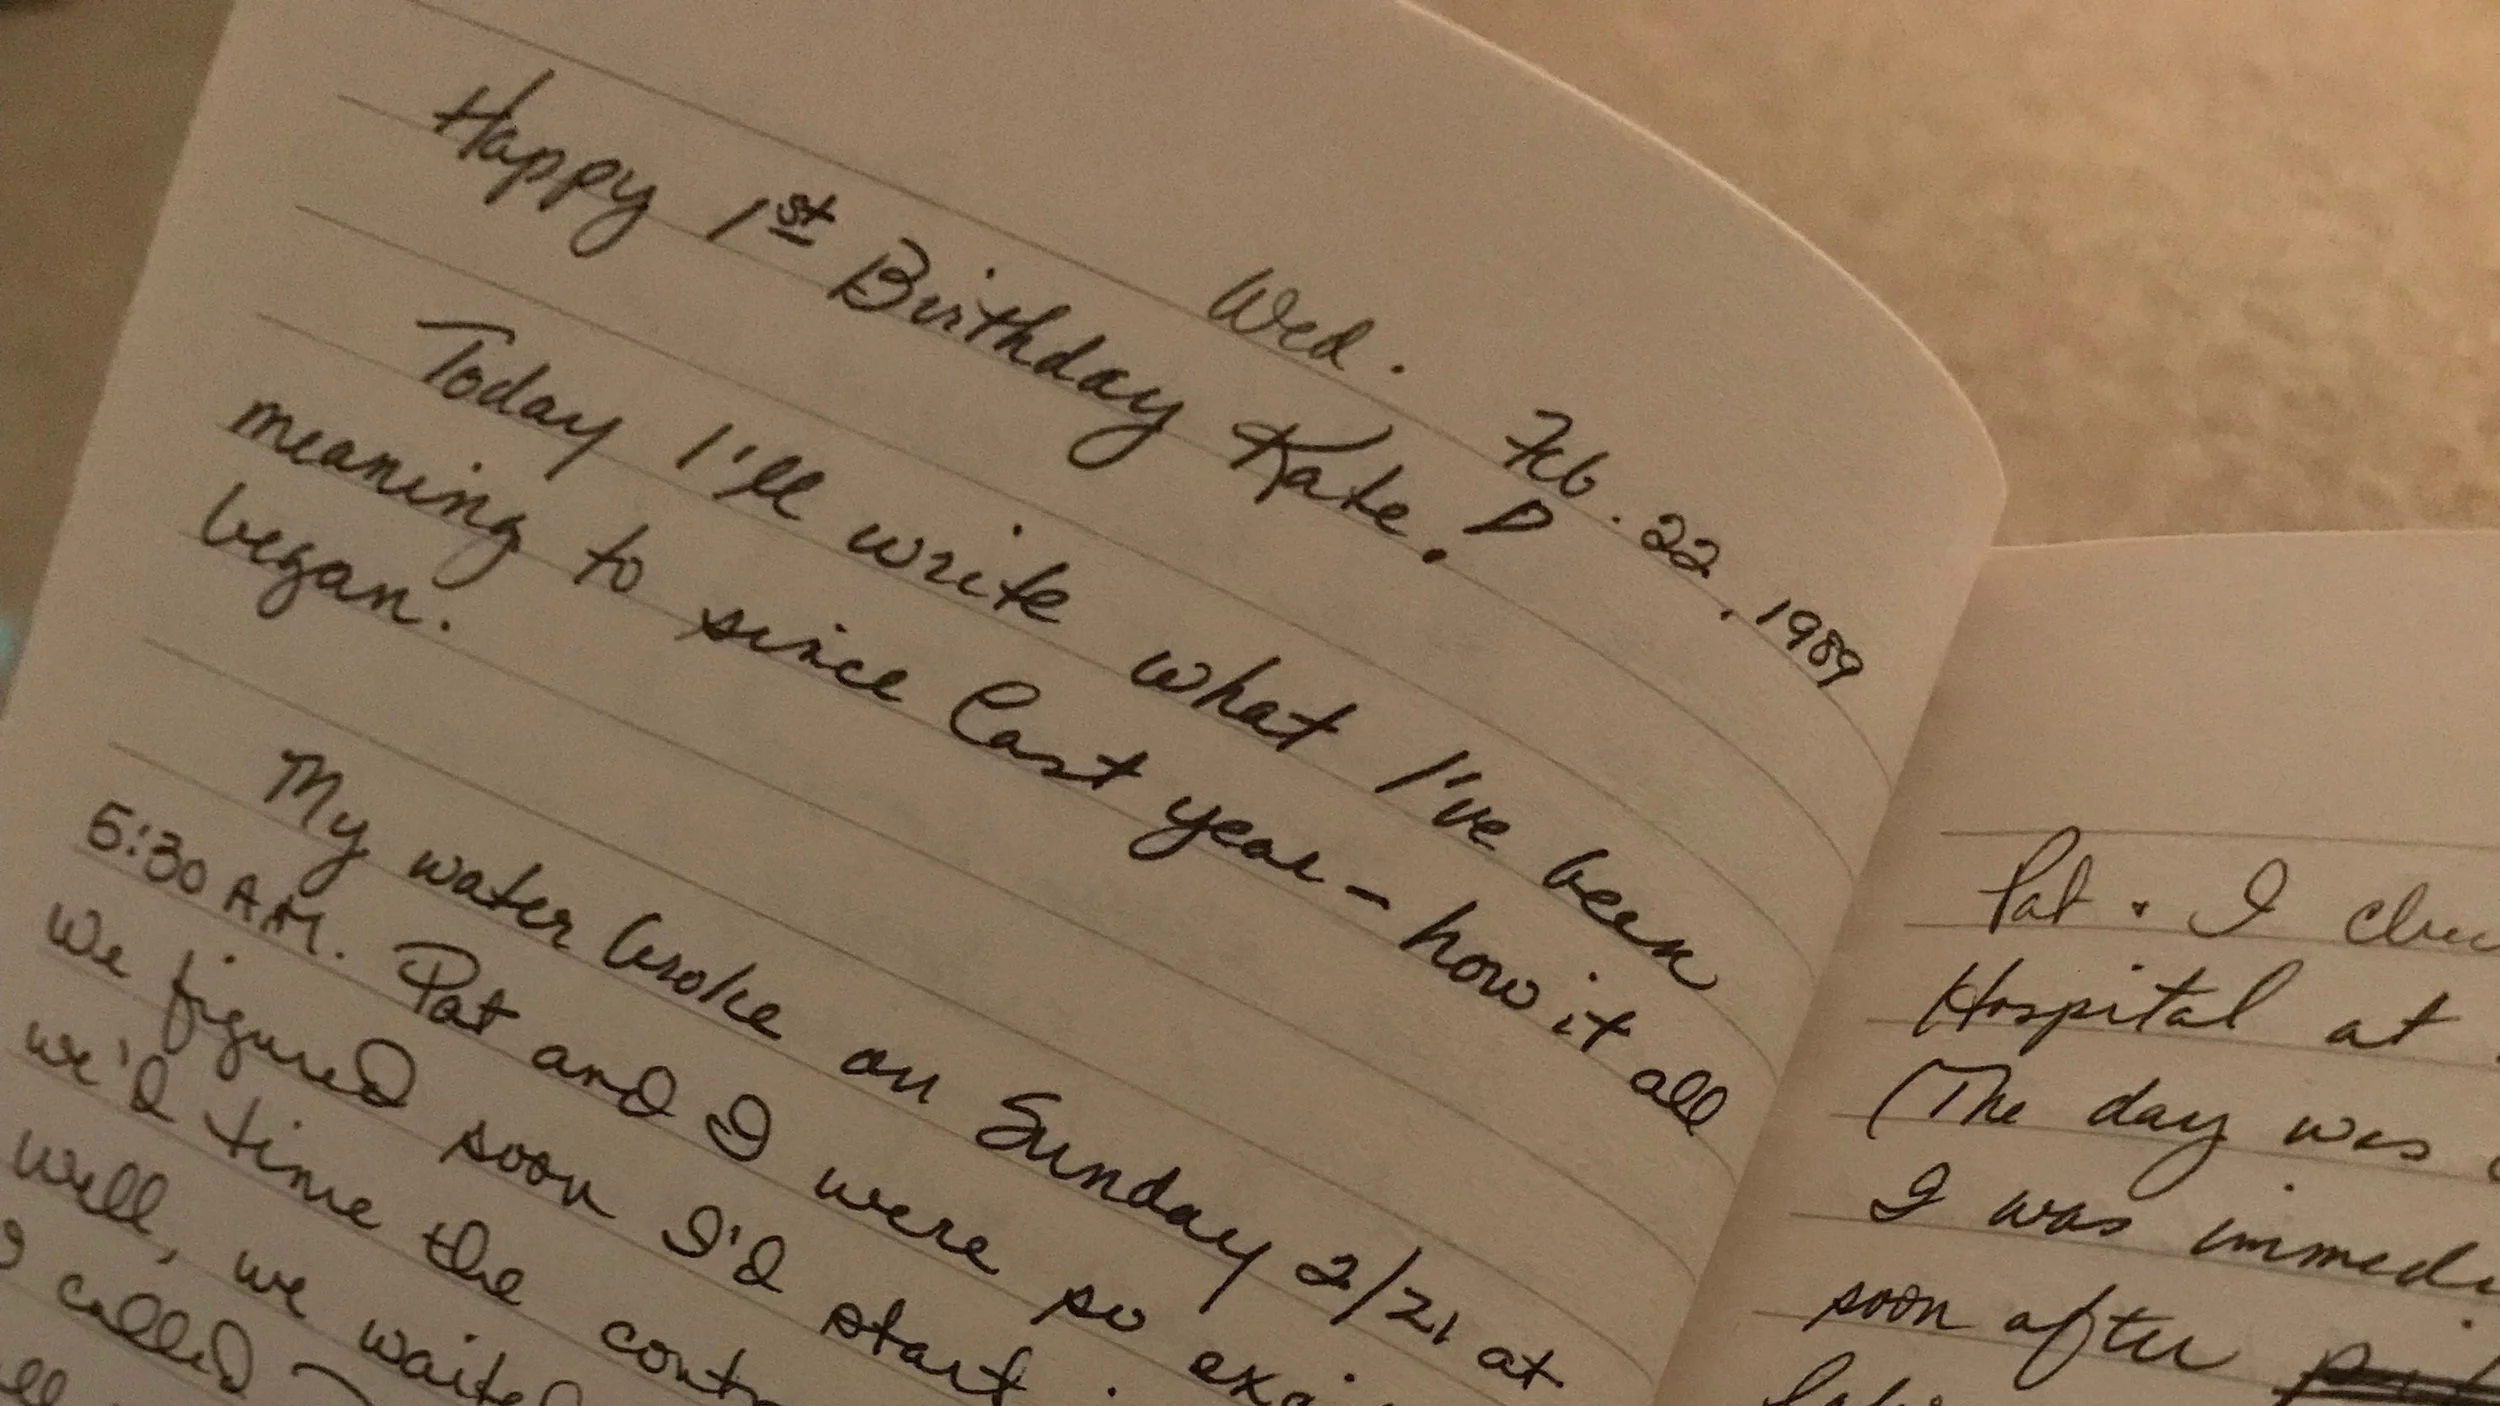 Wed. Feb. 22, 1989
Happy 1st Birthday Kate!
Today I'll write what I've been
meaning to since last year – how it all
began.
My water broke on Sunday 2/21 at
5:30 A.M. Pat and I were so
We figured soon I'd start
we'd time the
Well, we waited
called
Pat & I
Hospital at
(The day was
I was
soon after